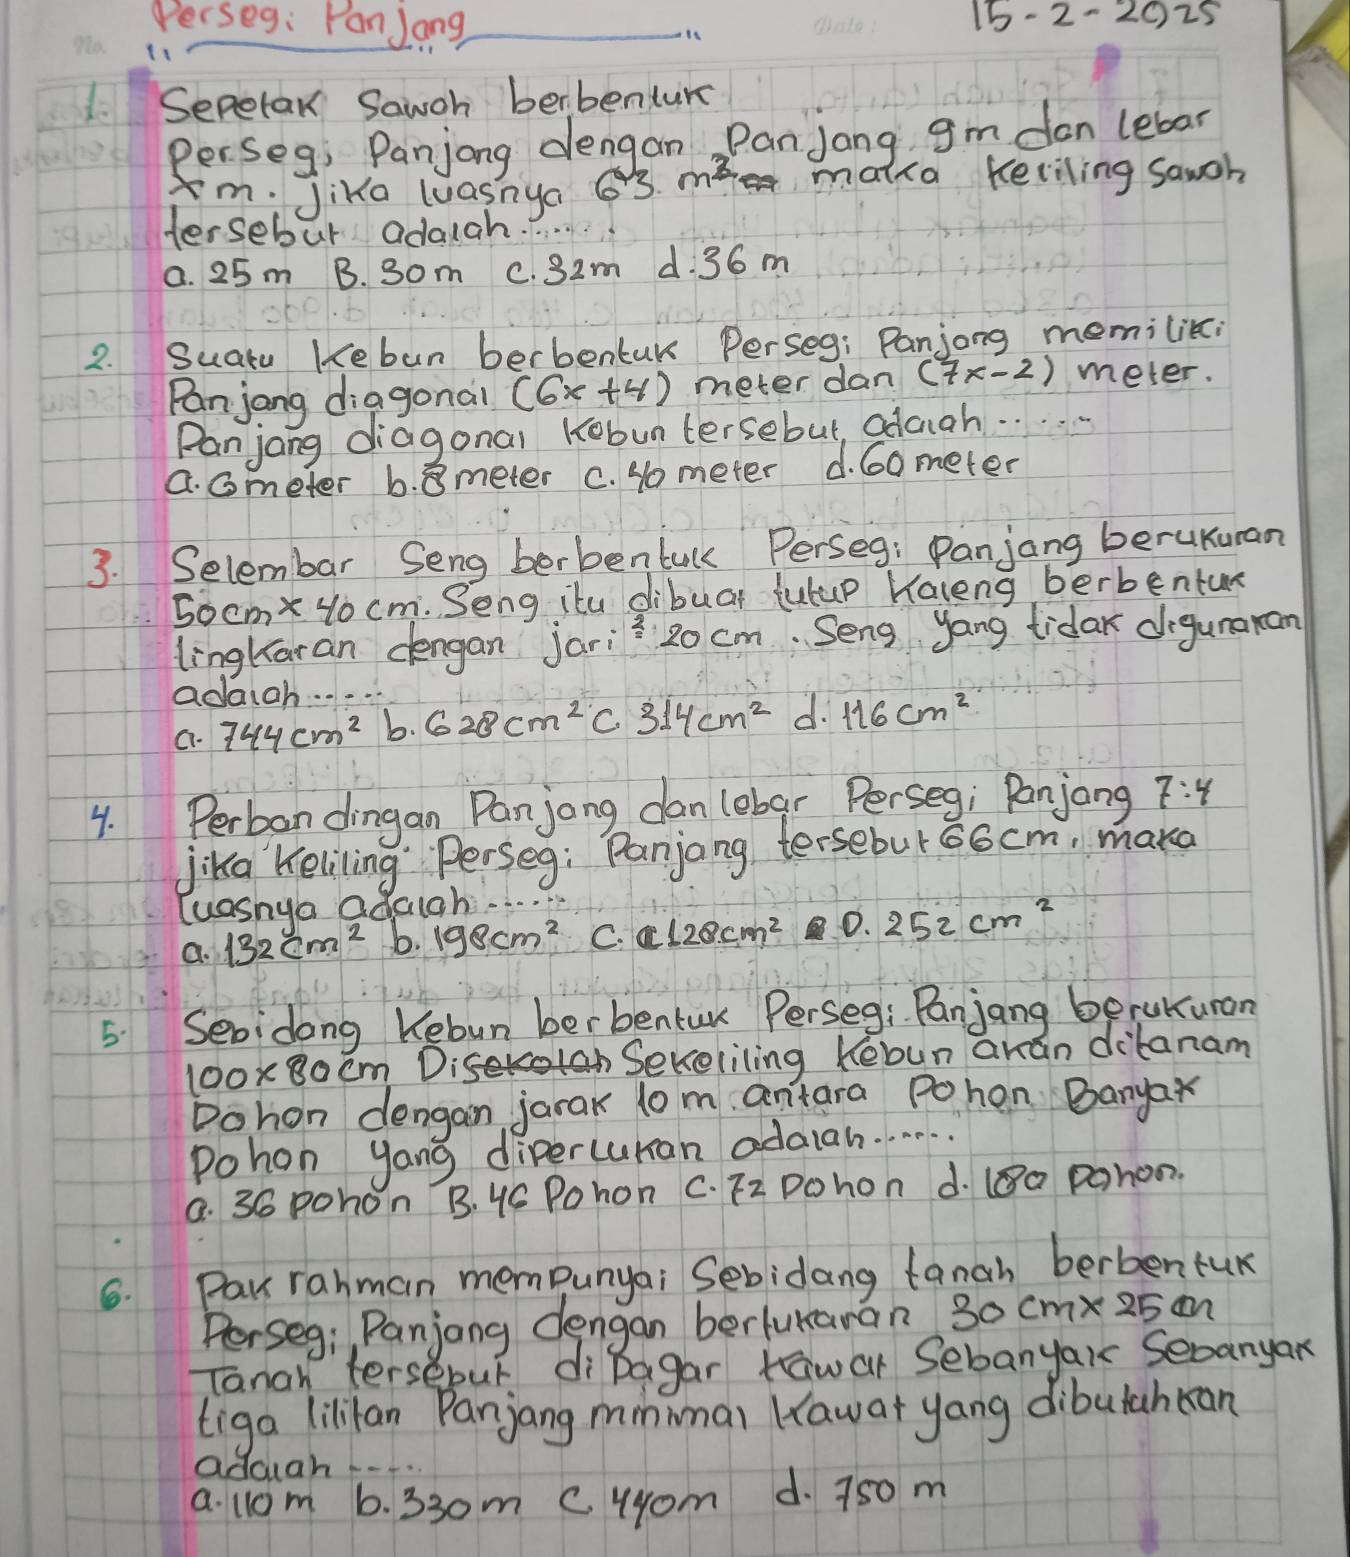 Persegi Panjang
15-2-2025
1. Sepetak Sawah berbentuk
Persegi Panjang dengan Panjang 9m dan lebar
xm. Jika luasnya 63 m² maka keliling sawah
tersebut adalah......
a. 25m B. 30m C. 32m d. 36m
2. Suatu Kebun berbentuk Persegi Panjang memiliki
Panjang diagonal (6x+4) meter dan (7x-2) meter.
Panjang diagonal Kebun tersebut adalah......
a. 6meter b. 8meter C. 40 meter d. 60 meter
3. Selembar Seng berbentuk Persegi Panjang berukuran
50cm x 40 cm. Seng itu dibuat tutup Kaleng berbentuk
lingkaran dengan jari² 20 cm. Seng yang tidak digunakan
adalah.....
a. 744 cm² b. 628 cm² C. 314 cm² d. 116 cm²
4. Perbandingan Panjang dan lebar Persegi Panjang 7:4
jika Keliling Persegi Panjang tersebut 66cm, maka
luasnya adalah......
a. 132 cm² b. 198cm² C. 128cm² D. 252 cm²
5. Sebidang Kebun berbentuk Persegi Panjang berukuran
100x80cm Disekolah Sekeliling Kebun akan ditanam
Pohon dengan jarak 10 m antara Pohon Banyak
Pohon yang diperlukan adalah......
a. 36 pohon B. 46 Pohon C. 72 Pohon d. 180 pohon.
6. Pak rahman mempunyai Sebidang tanah berbentuk
Persegi Panjang dengan berlukaran 30 cm x 25 cm
Tanah tersebut di pagar kawat Sebanyak Sebanyak
tiga lilitan Panjang minimal Kawat yang dibutuhkan
adalah.....
a. 110 m b. 330 m C. 440m d. 750 m